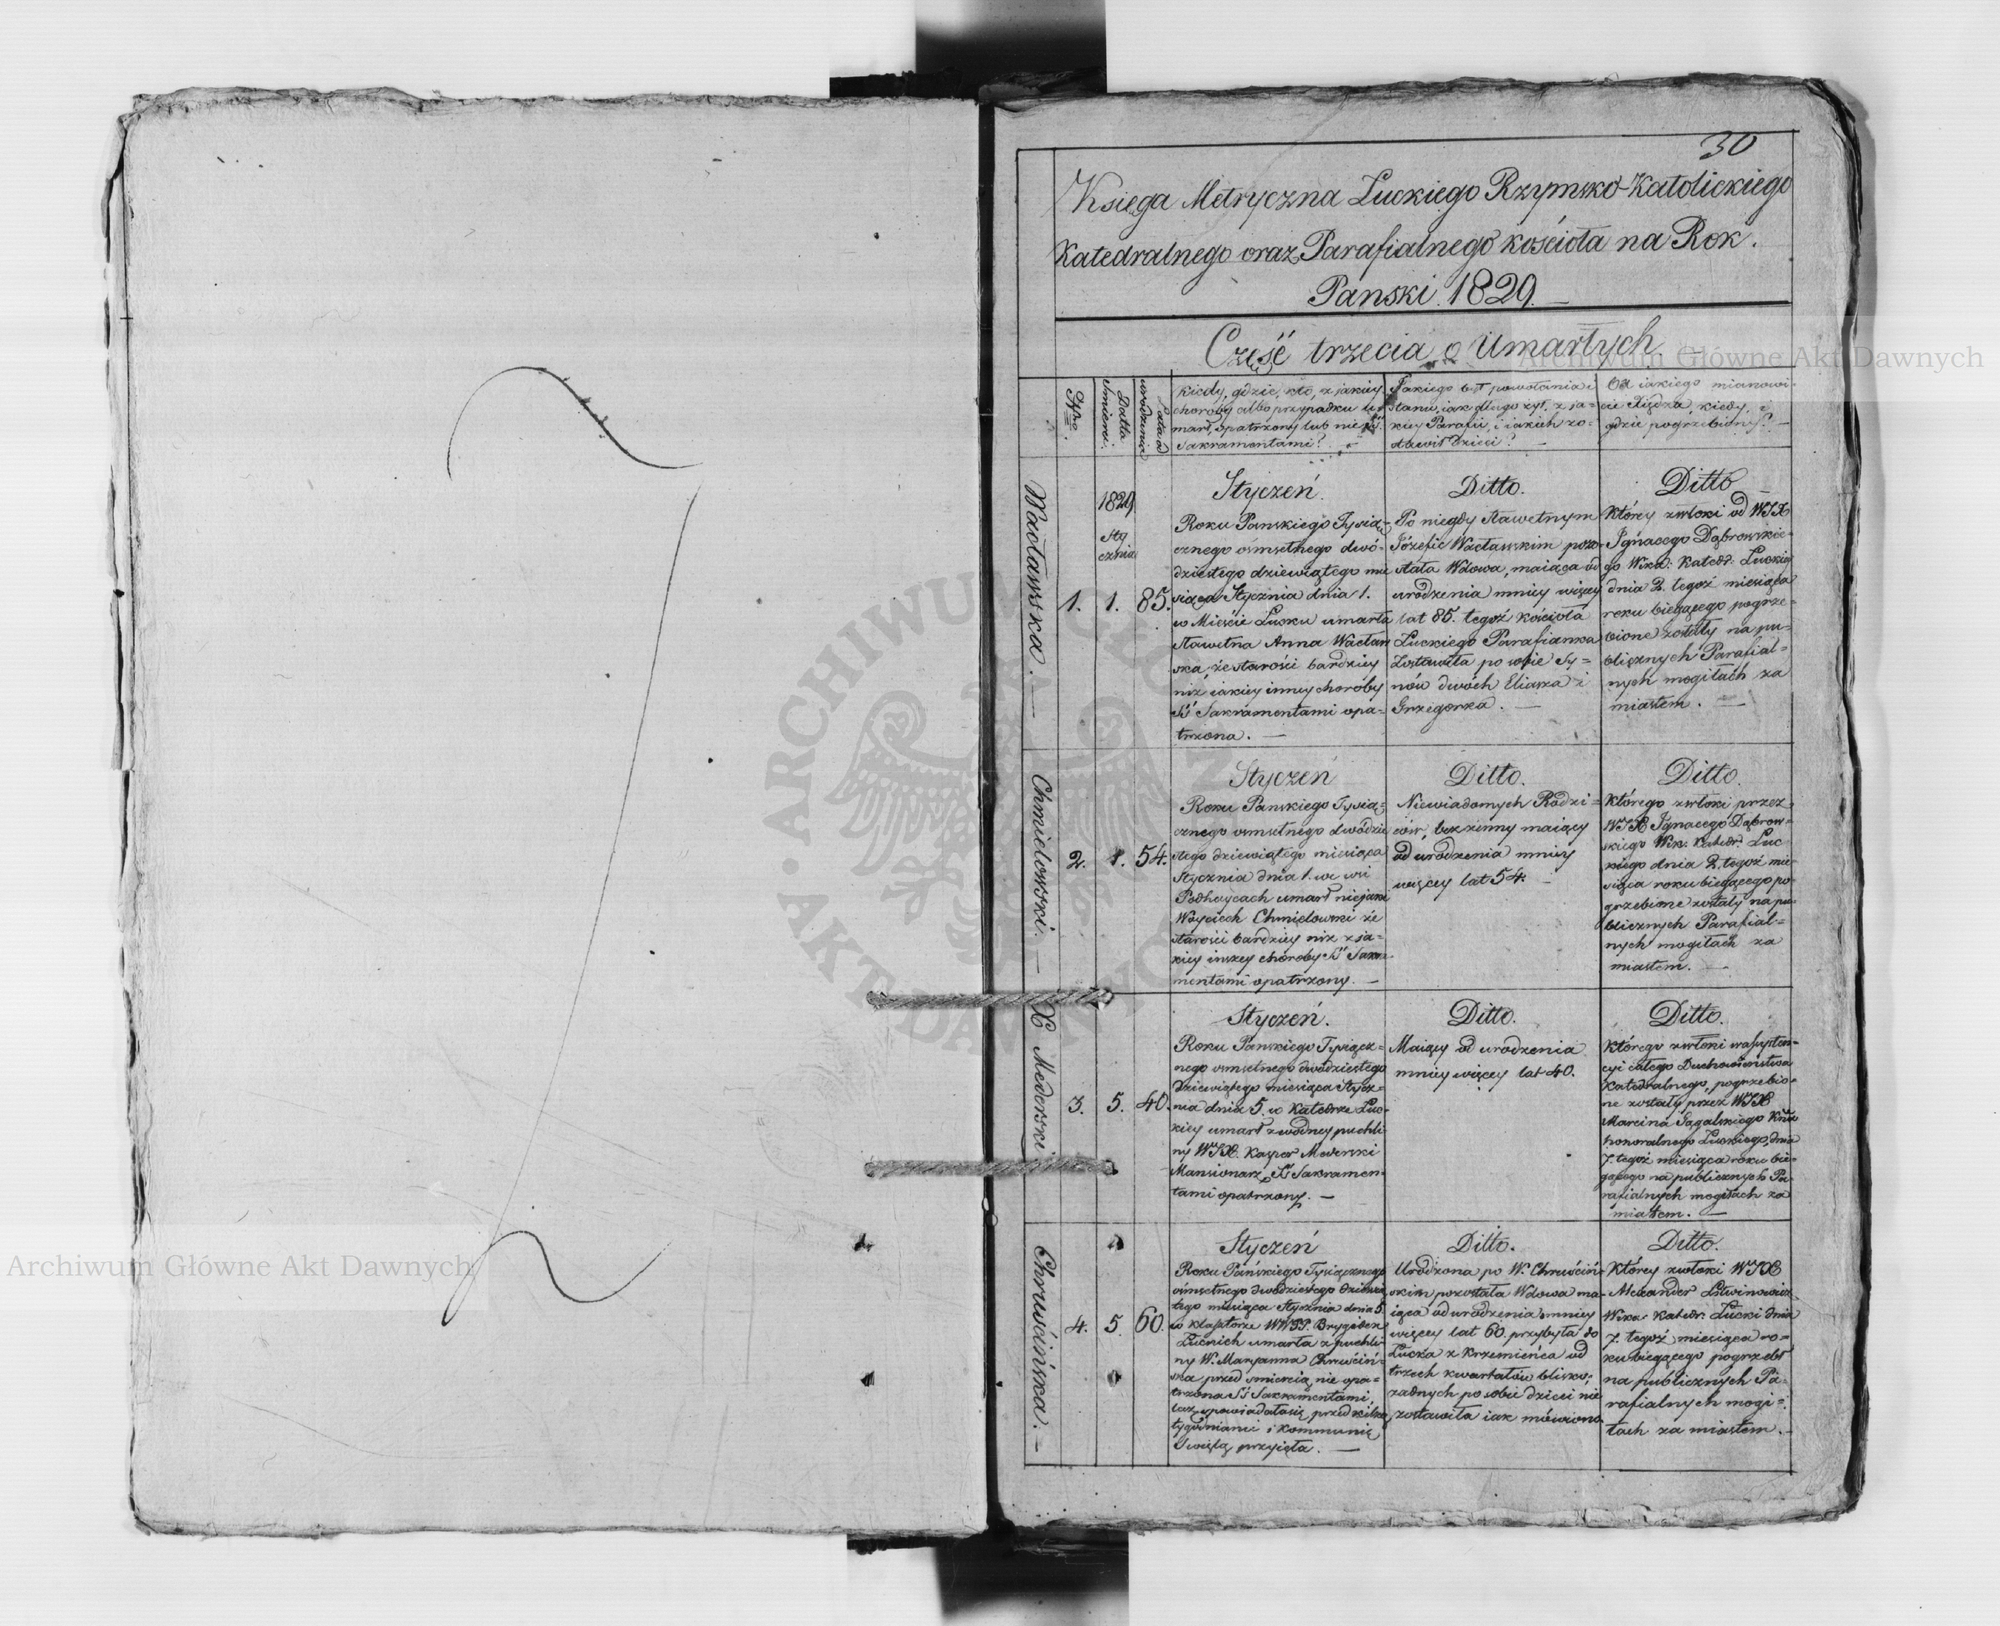 30
Księga Metryczna Łuckiego Rzymsko-Katolickiego
Katedralnego oraz Parafialnego kościoła na Rok.
Panski 1829. —
Część trzecia o Umarłych
Nro.
Datta
Smierci.
Lata od
urodzenia
Kiedy, gdzie, kto, z jakiey
choroby albo przypadku u-
marł, opatrzony lub nie SS.
Sakramentami? —
Jakiego był powołania i
stanu, iak długo żył, z ja-
kiey Parafii, i iakich zo-
stawił dzieci? —
Od iakiego mianowi-
cie Xiędza, kiedy, i
gdzie pogrzebiony? —
Wacławska. —
1829
Sty
cznia
1.
1.
85.
Styczeń.
Roku Panskiego Tysią-
cznego ośmsetnego dwó-
dziestego dziewiątego mie
siąca Stycznia dnia 1.
w Mieście Łucku umarła
Sławetna Anna Wacław
ska, ze starości bardziey
niż jakiey inney choroby
SS Sakramentami opa-
trzona. —
Ditto.
Po niegdy Sławetnym
Józefie Wacławskim pozo-
stała Wdowa, maiąca od
urodzenia mniey więcey
lat 85. tegoż kościoła
Łuckiego Parafianka
Zostawiła po sobie Sy-
nów dwóch Eliasza i
Grzegorza. —
Ditto
Którey zwłoki od WJX
Ignacego Dąbrowskie-
go Wika: Katedr: Łuckieg
dnia 2. tegoż miesiąca
roku bieżącego pogrze-
bione zostały na pu-
blicznych Parafial-
nych mogiłach za
miastem. —
Chmielowski. —
2.
1.
54.
Styczeń
Roku Panskiego Tysią-
cznego osmsetnego dwódzie
stego dziewiątego miesiąca
Stycznia dnia 1. we wsi
Podhaycach umarł niejaki
Woyciech Chmielowski ze
starości bardziey niż z ja-
kiey inszey choroby SS Sakra-
mentami opatrzony. —
Ditto.
Niewiadomych Rodzi-
ców, bezżenny maiący
od urodzenia mniey
więcey lat 54. —
Ditto.
Którego zwłoki przez
WJX Ignacego Dąbrow-
skiego Wik: Katedr: Łuc
kiego dnia 2. tegoż mie-
siąca roku bieżącego po-
grzebione zostały na pu
blicznych Parafial-
nych mogiłach za
miastem. —
X Mederski
3.
5.
40.
Styczeń.
Roku Panskiego Tysiącz-
nego osmsetnego dwódziestego
dziewiątego miesiąca Stycz-
nia dnia 5. w Katedrze Łuc-
kiey umarł z wodney puchli-
ny WJX. Kasper Mederski
Mansionarz, SS Sakramen-
tami opatrzony. —
Ditto.
Maiący od urodzenia
mniey więcey lat 40.
Ditto.
Którego zwłoki w assysten-
cyi całego Duchowieństwa
Katedralnego, pogrzebio-
ne zostały przez WJX
Marcina Sągalskiego
honoralnego Łuckiego, dnia
7. tegoż miesiąca roku bie-
żącego na publicznych Pa-
rafialnych mogiłach za
miastem. —
Chruścińska. —
4.
5.
60.
Styczeń
Roku Pańskiego Tysiącznego
ośmsetnego dwodziestego dziewią
tego miesiąca Stycznia dnia 5.
w klasztorze WWJP. Brygidek
Łuckich umarła z puchli
ny W. Maryanna Chruściń-
ska przed śmiercią nie opa-
trzona SS Sakramentami,
lecz spowiadała się przed kilko
tygodniami i kommunią
Swiętą przyięła. —
Ditto.
Urodzona po W. Chruściń-
skim pozostała Wdowa ma-
iąca od urodzenia mniey
więcey lat 60. przybyła do
Łucka z Krzemieńca od
trzech kwartałów blisko;
żadnych po sobie dzieci nie
zostawiła iak mówiono
Ditto.
Którey zwłoki WJX
Alexander Litwinowicz
Wika: Katedr: Łucki dnia
7. tegoż miesiąca ro-
ku bieżącego pogrzebł
na publicznych Pa-
rafialnych mogi-
łach za miastem. —
Archiwum Główne Akt Dawnych
Archiwum Główne Akt Dawnych